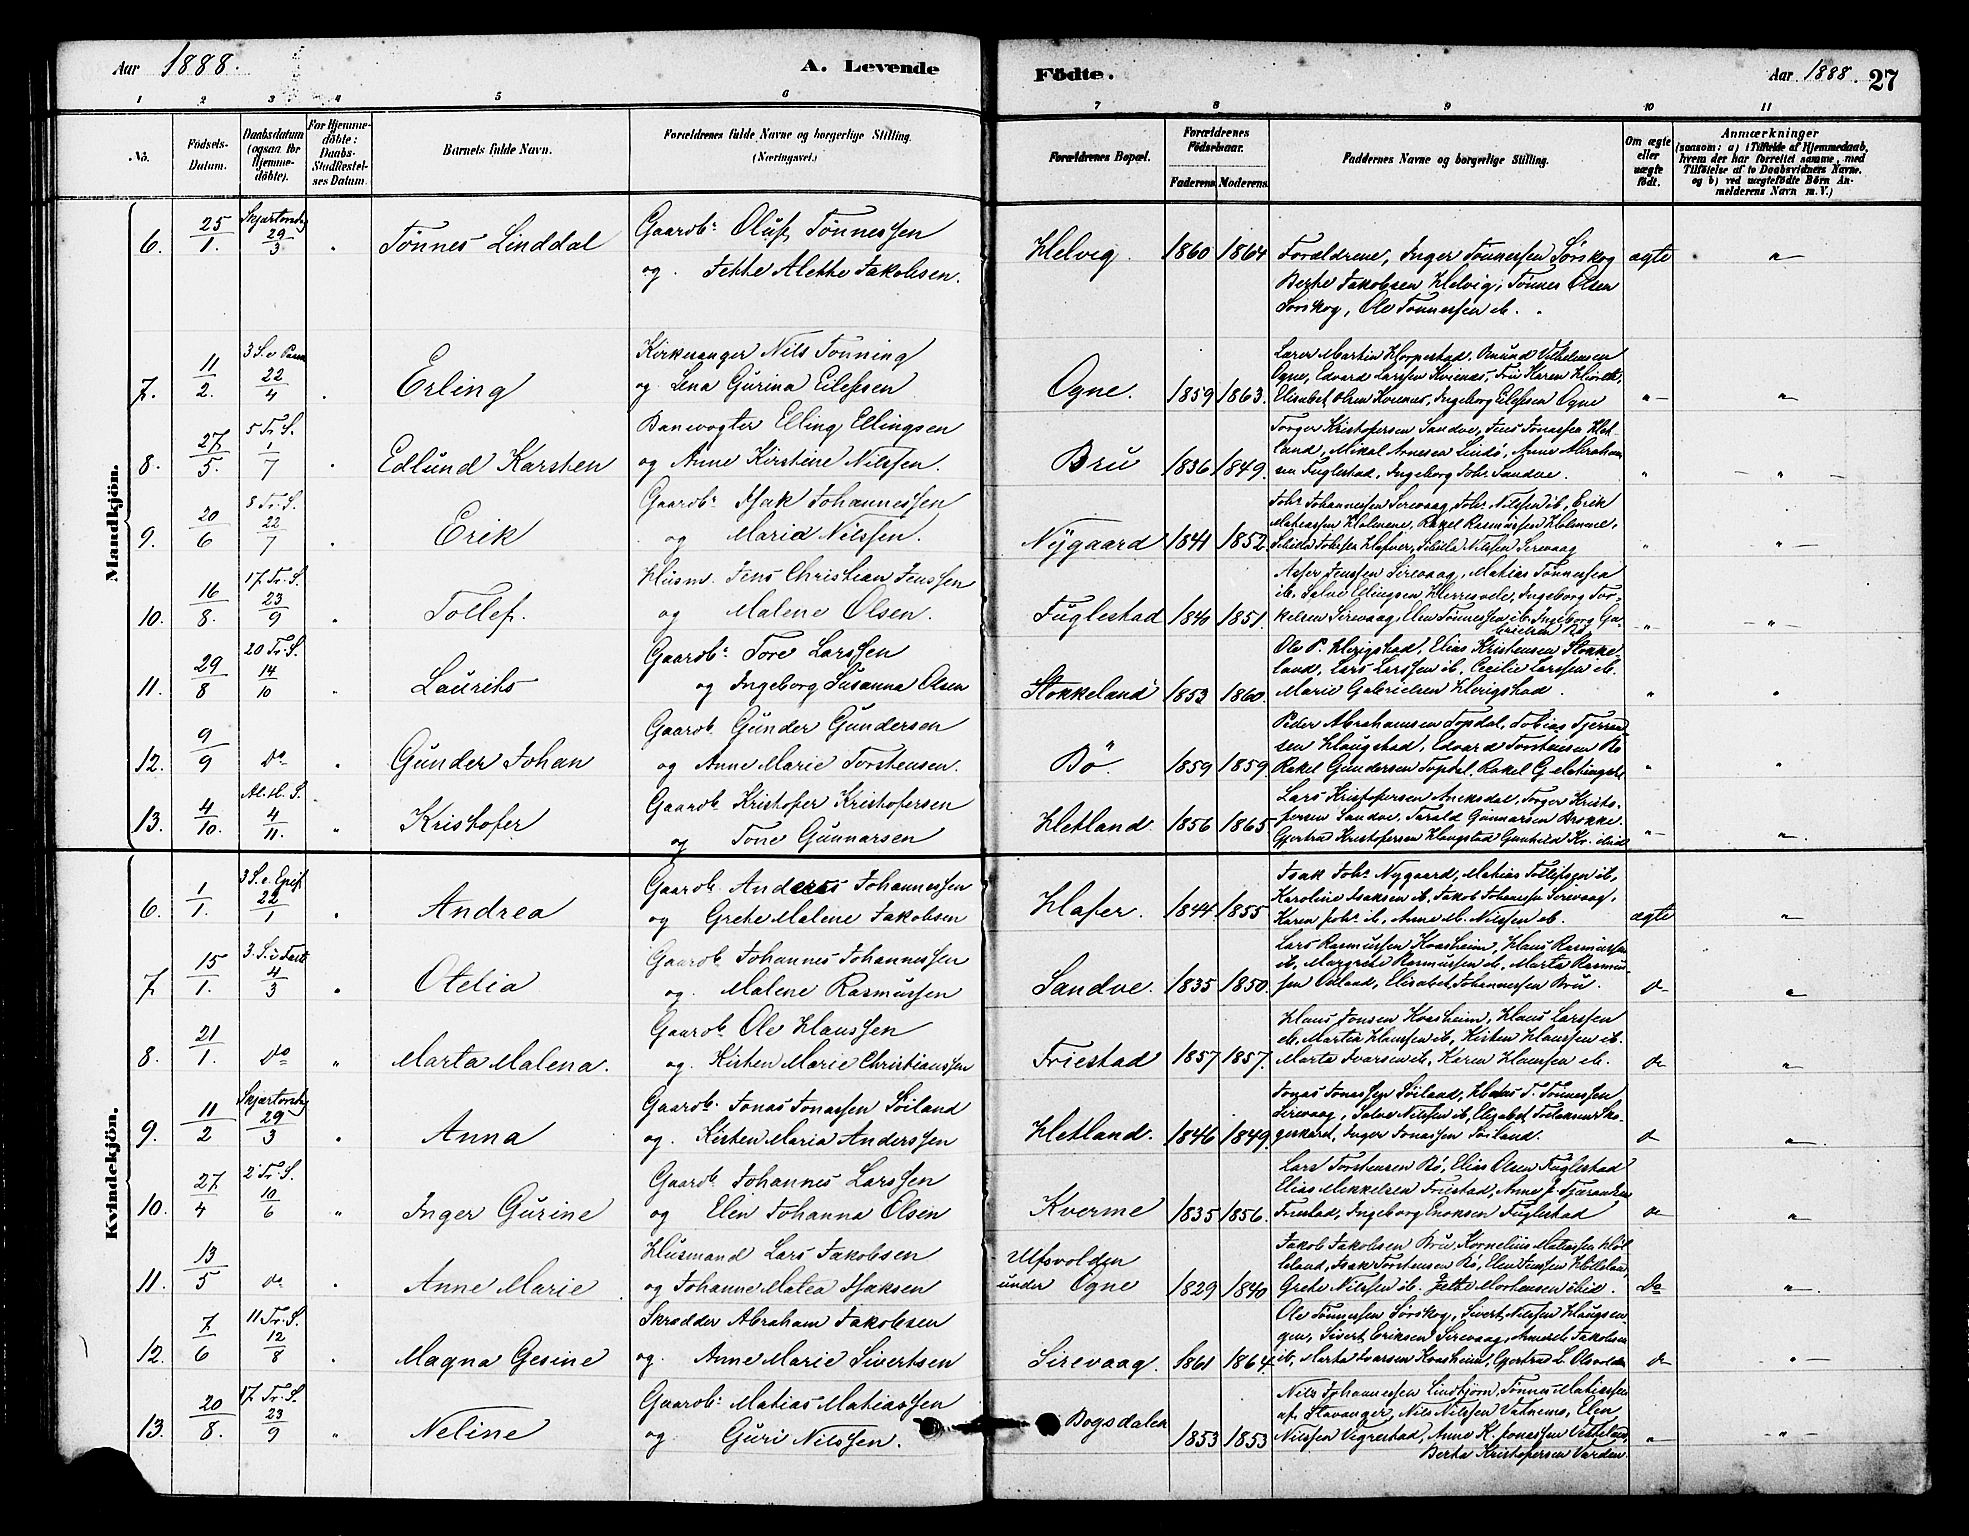 Aar 1888.
A. Levende
Födte.
Aar 1888. 27
1 2 3 4 5 6 7 8 9 10 11
No.
Födsels-Datum.
Daabsdatum (ogsaa for Hjemmedöbte).
For Hjemmedöbte: Daabs-Stadfæstelses Datum.
Barnets fulde Navn.
Forældrenes fulde Navne og borgerlige Stilling. (Næringsvei.)
Forældrenes Bopæl.
Forældrenes Födselsaar.
Faderens Moderens
Faddernes Navne og borgerlige Stilling.
Om ægte eller uægte födt.
Anmærkninger (saasom: a) i Tilfælde af Hjemmedaab, hvem der har forrettet samme, med Tilföielse af to Daabsvidners Navne, og b) ved uægtefödte Börn Anmelderens Navn m. V.)
Mandkjön.
6. 25/1. Skjærtorsdag 29/3 Tønnes Linddal Gaardb. Oluf Tønnessen
og Jette Alette Jakobsen.
Helvig. 1860 1864 Forældrene, Inger Tønnessen Sørskog
Berte Jakobsen Helvig, Tønnes Olsen
Sørskog, Ole Tønnessen ib.
ægte "
7. 11/2. 3 S. e Paask 22/4 Erling Kirkesanger Nils Tønning
og Lena Gurina Eilefsen
Ogne. 1859 1863. Lærer Martin Horpestad,
Ogne, Edvard Larssen Kvienes, Fru Karen
Elisabet Olsen Kvienes, Ingeborg Eilefsen Ogne
" "
8. 27/5. 5 Tr. S. 1/7 Edlund Karsten Banevogter Elling Ellingsen
og Anne Kirstine Nilssen.
Bru 1836 1849. Torger Kristofersen Sandve, Jens Jonassen Het-
land, Mikal Arnesen Lindø, Anne Abraham
sen Fuglestad, Ingeborg Johs Sandve.
" "
9. 20/6 8 Tr. S. 22/7 Erik Gaardb. Isak Johannessen
og Maria Nilssen.
Nygaard 1841 1852. Johs Johannessen Sirevaag, Johs Nilssen ib, Erik
Matiassen Holmene, Rakel Rasmussen Holmene,
Nilssen Sirevaag
" "
10. 16/8. 17 Tr. S. 23/9 Tollef. Husm. Jens Christian Jenssen
og Malene Olsen.
Fuglestad 1840 1851. Asser Jenssen Sirevaag, Matias Tønnessen
ib. Salve Ellingsen Herresvele, Ingeborg Tor-
kelsen Sirevaag, Elen Tønnessen ib. Ingeborg Ga-
brielsen Bø
" "
11. 29/8 20 Tr. S. 14/10 Laurits Gaardb. Tore Larssen
og Ingeborg Susanna Olsen
Stokkeland 1853 1860. Ole P. Herigstad, Elias Kristensen Stokke-
land, Lars Larssen ib, Cecilie Larssen ib.
Marie Gabrielsen Herigstad.
" "
12. 9/9 Do " Gunder Johan Gaardb. Gunder Gundersen
og Anne Marie Torstensen.
Bø. 1859 1859 Peder Abrahamsen Topdal, Tobias
sen Haugstad, Edvard Torstensen Bø
Rakel Gundersen Topdal, Rakel G
" "
13. 4/10. Al. H. S. 4/11. " Kristofer Gaardb. Kristofer Kristofersen
og Tone Gunnarsen
Hetland. 1856 1865 Lars Kristofersen Aneksdal, Torger Kristo-
fersen Sandve, Tarald Gunnarsen Brokke.
Gjertrud Kristofersen Haugstad Gunhild Kr. ibid
" "
Kvindekjön.
6. 1/1. 3 S. e. Epif. 22/1 " Andrea Gaardb. Anders Johannessen
og Grete Malene Jakobsen
Hafer. 1844. 1855 Isak Johs Nygaard, Matias Tollefsen ib,
Karoline Isaksen ib, Jakob Johannessen Sirevaag,
Karen Johs ib, Anne M. Nilssen ib.
ægte "
7. 15/1. 3. S. i Fast 4/3 " Otelia Gaardb. Johannes Johannessen
og. Malene Rasmussen
Sandve. 1835 1850. Lars Rasmussen Kvasheim, Klaus Rasmussen
ib, Margrete Rasmussen ib, Marta Rasmus-
sen Odland, Elisabet Johannessen Bru.
do "
8. 21/1. Do " Marta Malena. Gaardb. Ole Klaussen
og. Kirsten Marie Christianssen
Friestad 1857 1857. Klaus Jonsen Kvasheim, Klaus Larssen
ib, Martin Klaussen ib, Kirsten Klaussen ib.
Marta Ivarsen ib, Karen Klaussen ib.
do "
9. 11/2 Skjærtorsdag 29/3 " Anna Gaardb. Jonas Jonassen Søiland
og. Kirsten Maria Anderssen
Hetland. 1846 1849. Jonas Jonassen Søiland, Klaus T. Tønnessen,
Sirevaag, Salve Nilssen ib, Elisabet
Inger Jonassen Søiland.
do "
10. 27/4 2 Tr. S. 10/6 " Inger Gurine Gaardb. Johannes Larssen
og Elen Johanna Olsen
Kverme 1835 1856. Lars Torstensen Bø, Elias Olsen Fuglestad
Elias Mikkelsen Friestad, Anne
Friestad, Ingeborg Enoksen Fuglestad
do "
11. 13/5 do " Anne Marie Husmand Lars Jakobsen
og Johanne Matea Isaksen
Ulfsvolden
under Ogne 1829 1840 Jakob Jakobsen Bru, Kornelius Matiassen
Isak Torstensen Bø, Elen Jenssen
Grete Nilssen ib. Jette Mortensen ibid.
Do "
12. 7/6 11 Tr. S. 12/8 " Magna Gesine Skrædder Abraham Jakobsen
og. Anne Marie Sivertsen
Sirevaag. 1861 1864. Ole Tønnessen Sørskog, Sivert Nilssen Haugsen-
gen, Sivert Eriksen Sirevaag, Jakobsen
ib, Marta Ivarsen Kvasheim, Gjertrud L.
do "
13. 20/8. 17 Tr. S. 23/9 " Neline Gaardb. Matias Matiassen
og Guri Nilssen.
Bogsdalen 1853 1853 Nils Johannessen Lindtjørn, Tønnes Matiassen
af Stavanger, Nils Nilssen Vatnemo, Elen
Nilssen Vigrestad, Anne K. Jonassen
Berta Kristofersen Varden.
" "